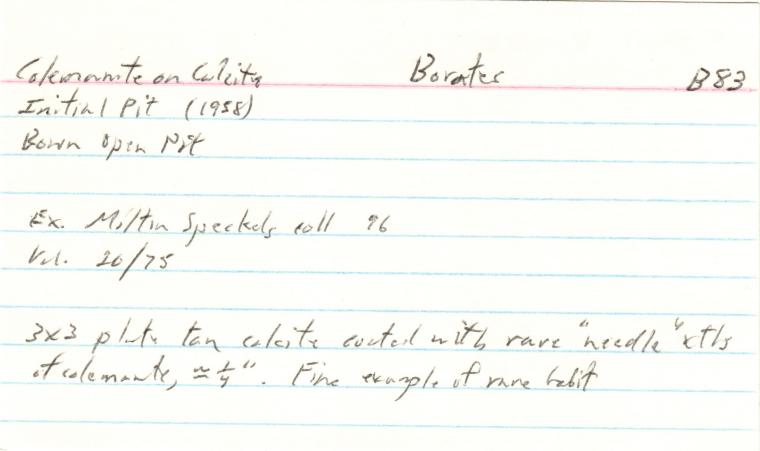 Colemanite on Calcite Borates B83
Initial Pit (1958)
Boron Open Pit
Ex. Miltin Speckels coll 96
Val. 20/75
3x3 plate tan calcite coated with rare "needle" xtls
of colemanite, ≈ 1/4". Fine example of rare habit